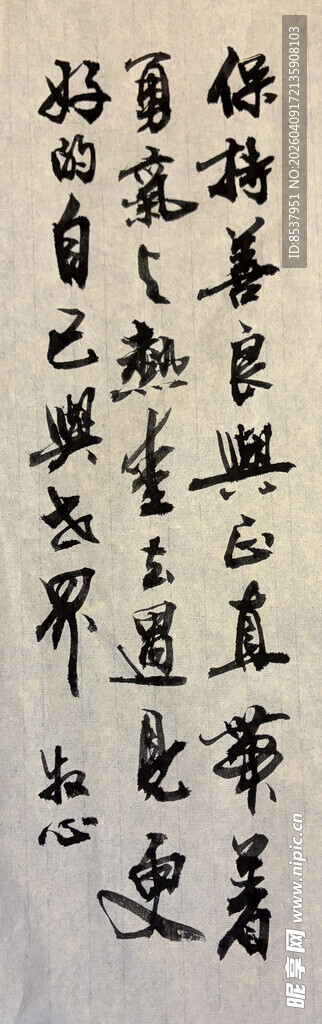 保持善良與正直帶着
勇氣与熱愛去遇見更
好的自己與世界
牧心
ID:8537951 NO:20260409172135908103
昵享网 www.nipic.cn